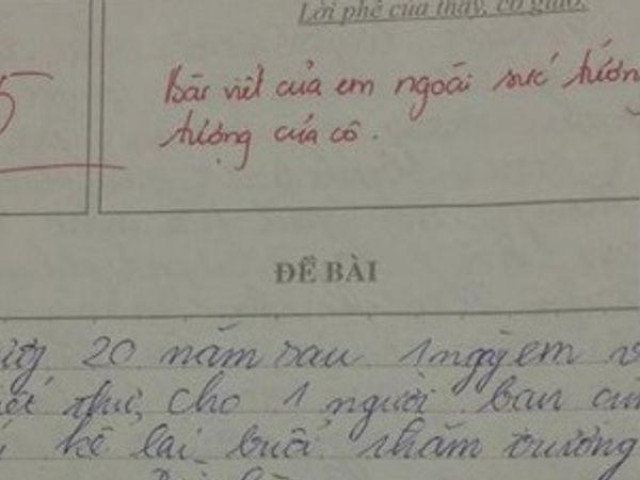 Lời phê của thầy, cô giáo.
5
Bài viết của em ngoài sức tưởng
tượng của cô.
ĐỀ BÀI
20 năm sau 1 ngày em
thư cho 1 người bạn
kể lại buổi thăm trường